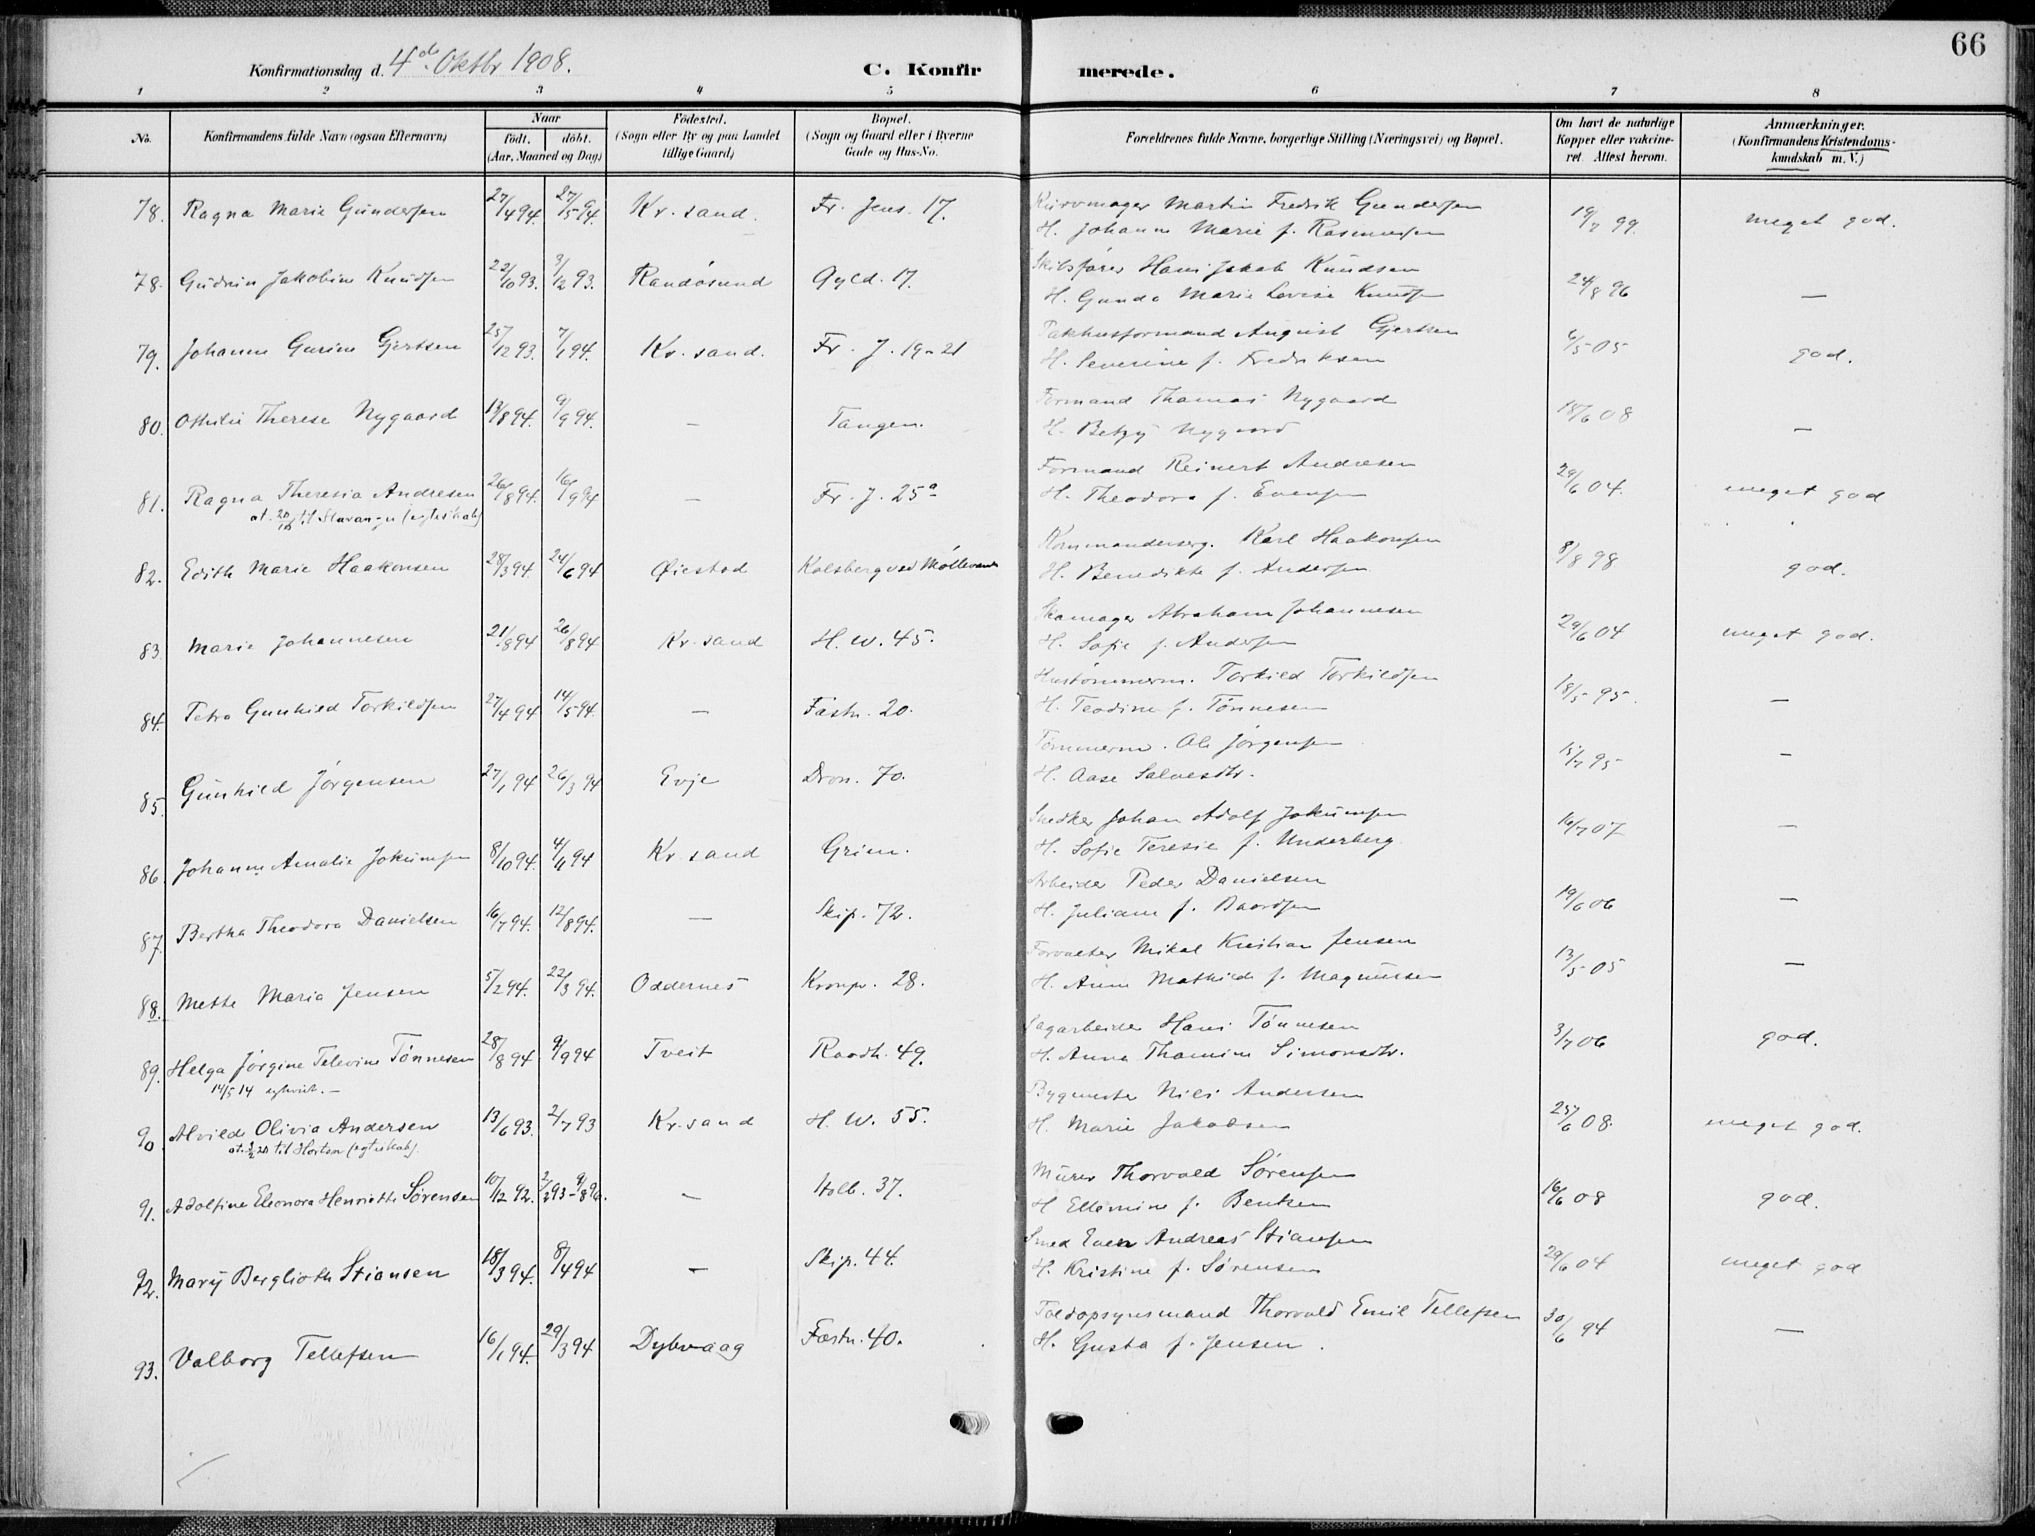 66
Konfirmationsdag d. 4de Oktbr 1908.
C. Konfirmerede.
1 2 3 4 5 6 7 8
No.
Konfirmandens fulde Navn (ogsaa Efternavn)
Naar
födt. döbt.
(Aar, Maaned og Dag)
Födested.
(Sogn eller By og paa Landet
tillige Gaard)
Bopæl.
(Sogn og Gaard eller i Byerne
Gade og Hus-No.
Forældrenes fulde Navne, borgerlige Stilling (Næringsvei) og Bopæl.
Om havt de naturlige
Kopper eller vakcine-
ret. Attest herom.
Anmærkninger.
(Konfirmandens Kristendoms-
kundskab m. V.)
78. Ragna Marie Gundersen 27/4 94. 27/5 94. Kr. sand. Fr. Jens. 17. Kurvmager Martin Fredrik Gundersen 19/7 99. meget god.
H. Johanne Marie f. Rasmussen
78. Gudrun Jakobine Knudsen 22/10 93. 3/12 93. Randösund Gyld. 17. Skibsförer Hans Jakob Knudsen 24/8 96 —
H. Gunda Marie Lovise Knudsen
79. Johanne Gurine Gjertsen 25/12 93. 7/1 94. Kr. sand. Fr. J. 19-21 Pakhusformand August Gjertsen 6/5 05 god.
H. Severine f. Fredriksen
80. Othilie Therese Nygaard 13/8 94. 9/9 94. — Tangen. Formand Thomas Nygaard 18/6 08 —
H. Betzy Nygaard
81. Ragna Theresia Andresen 26/8 94. 16/9 94 — Fr. J. 25a Formand Reinert Andresen 29/6 04. meget god
at. 20/10 til Stavanger (egteskab) H. Theodora f. Evensen
82. Edith Marie Haakonsen 28/3 94. 24/6 94 Øiestad Kolsberg ved Möllevand Kommandersrg. Karl Haakonsen 8/8 98 god.
H. Benedikte f. Andersen
83. Marie Johannesen 21/8 94 26/8 94 Kr. sand H. W. 45. Skomager Abraham Johannesen 29/6 04 meget god.
H. Sofie f. Andersen
84. Petra Gunhild Torkildsen 27/4 94 14/5 94. — Fæstn. 20. Hustömmerm. Torkild Torkildsen 18/5 95. —
H. Teodine f. Tönnesen
85. Gunhild Jörgensen 27/1 94 26/3 94 Evje Dron. 70. Tömmerm. Ole Jörgensen 15/7 95 —
H. Aase Salvesdtr.
86. Johanne Amalie Jokumsen 8/10 94. 4/11 94 Kr. sand Grim. Snedker Johan Adolf Jokumsen 16/7 07 —
H. Sofie Teresie f. Underberg
87. Bertha Theodora Danielsen 16/7 94. 12/8 94. — Skip. 72. Arbeider Peder Danielsen 19/6 06 —
H. Juliane f. Baardsen
88. Mette Maria Jensen 5/2 94. 22/3 94. Oddernes Kronpr. 28. Forvalter Mikal Kristian Jensen 13/5 05 —
H. Anne Mathilde f. Magnussen
89. Helga Jörgine Televine Tönnesen 28/8 94 9/9 94 Tveit Raadh. 49. Sagarbeider Hans Tönnesen 3/7 06 god.
14/5 14 H. Anna Thomine Simonsdtr.
90. Alvilde Olivia Andersen 13/6 93. 2/7 93 Kr. sand H. W. 55. Bygmester Nils Andersen 25/6 08. meget god.
at. 3/2 20 til Horten (egteskab). H. Marie Jakobsen
91. Adolfine Eleonora Henriette Sörensen 10/12 92. 2/3 93 - 9/8 96. — Holb. 37. Murer Thorvald Sörensen 16/6 08 god.
H Ellemine f. Bentsen
92. Mary Berglioth Stiansen 18/3 94. 8/4 94 — Skip. 44. Smed Even Andreas Stiansen 29/6 04 meget god
H. Kristine f. Sörensen
93. Valborg Tellefsen 16/1 94. 29/3 94 Dybvaag Fæstn. 40. Toldopsynsmand Thorvald Emil Tellefsen 30/6 94 —
H. Gusta f. Jensen.